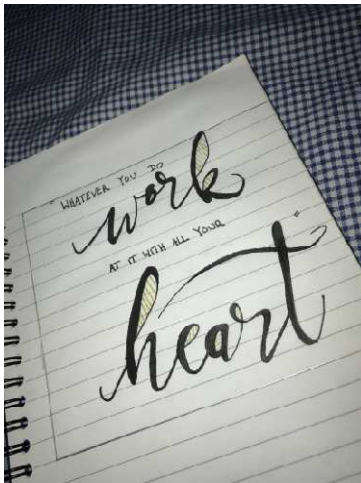 "WHATEVER YOU DO
work
AT IT WITH ALL YOUR
heart"